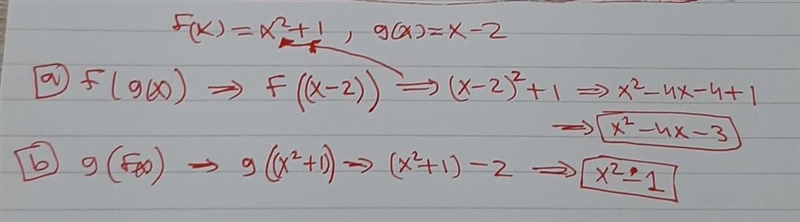 f(x) = x²+1 , g(x) = x-2
a) f(g(x)) ⇒ f((x-2)) ⇒ (x-2)²+1 ⇒ x²-4x-4+1
⇒ x²-4x-3
b) g(f(x)) → g((x²+1)) → (x²+1)-2 ⇒ x²-1